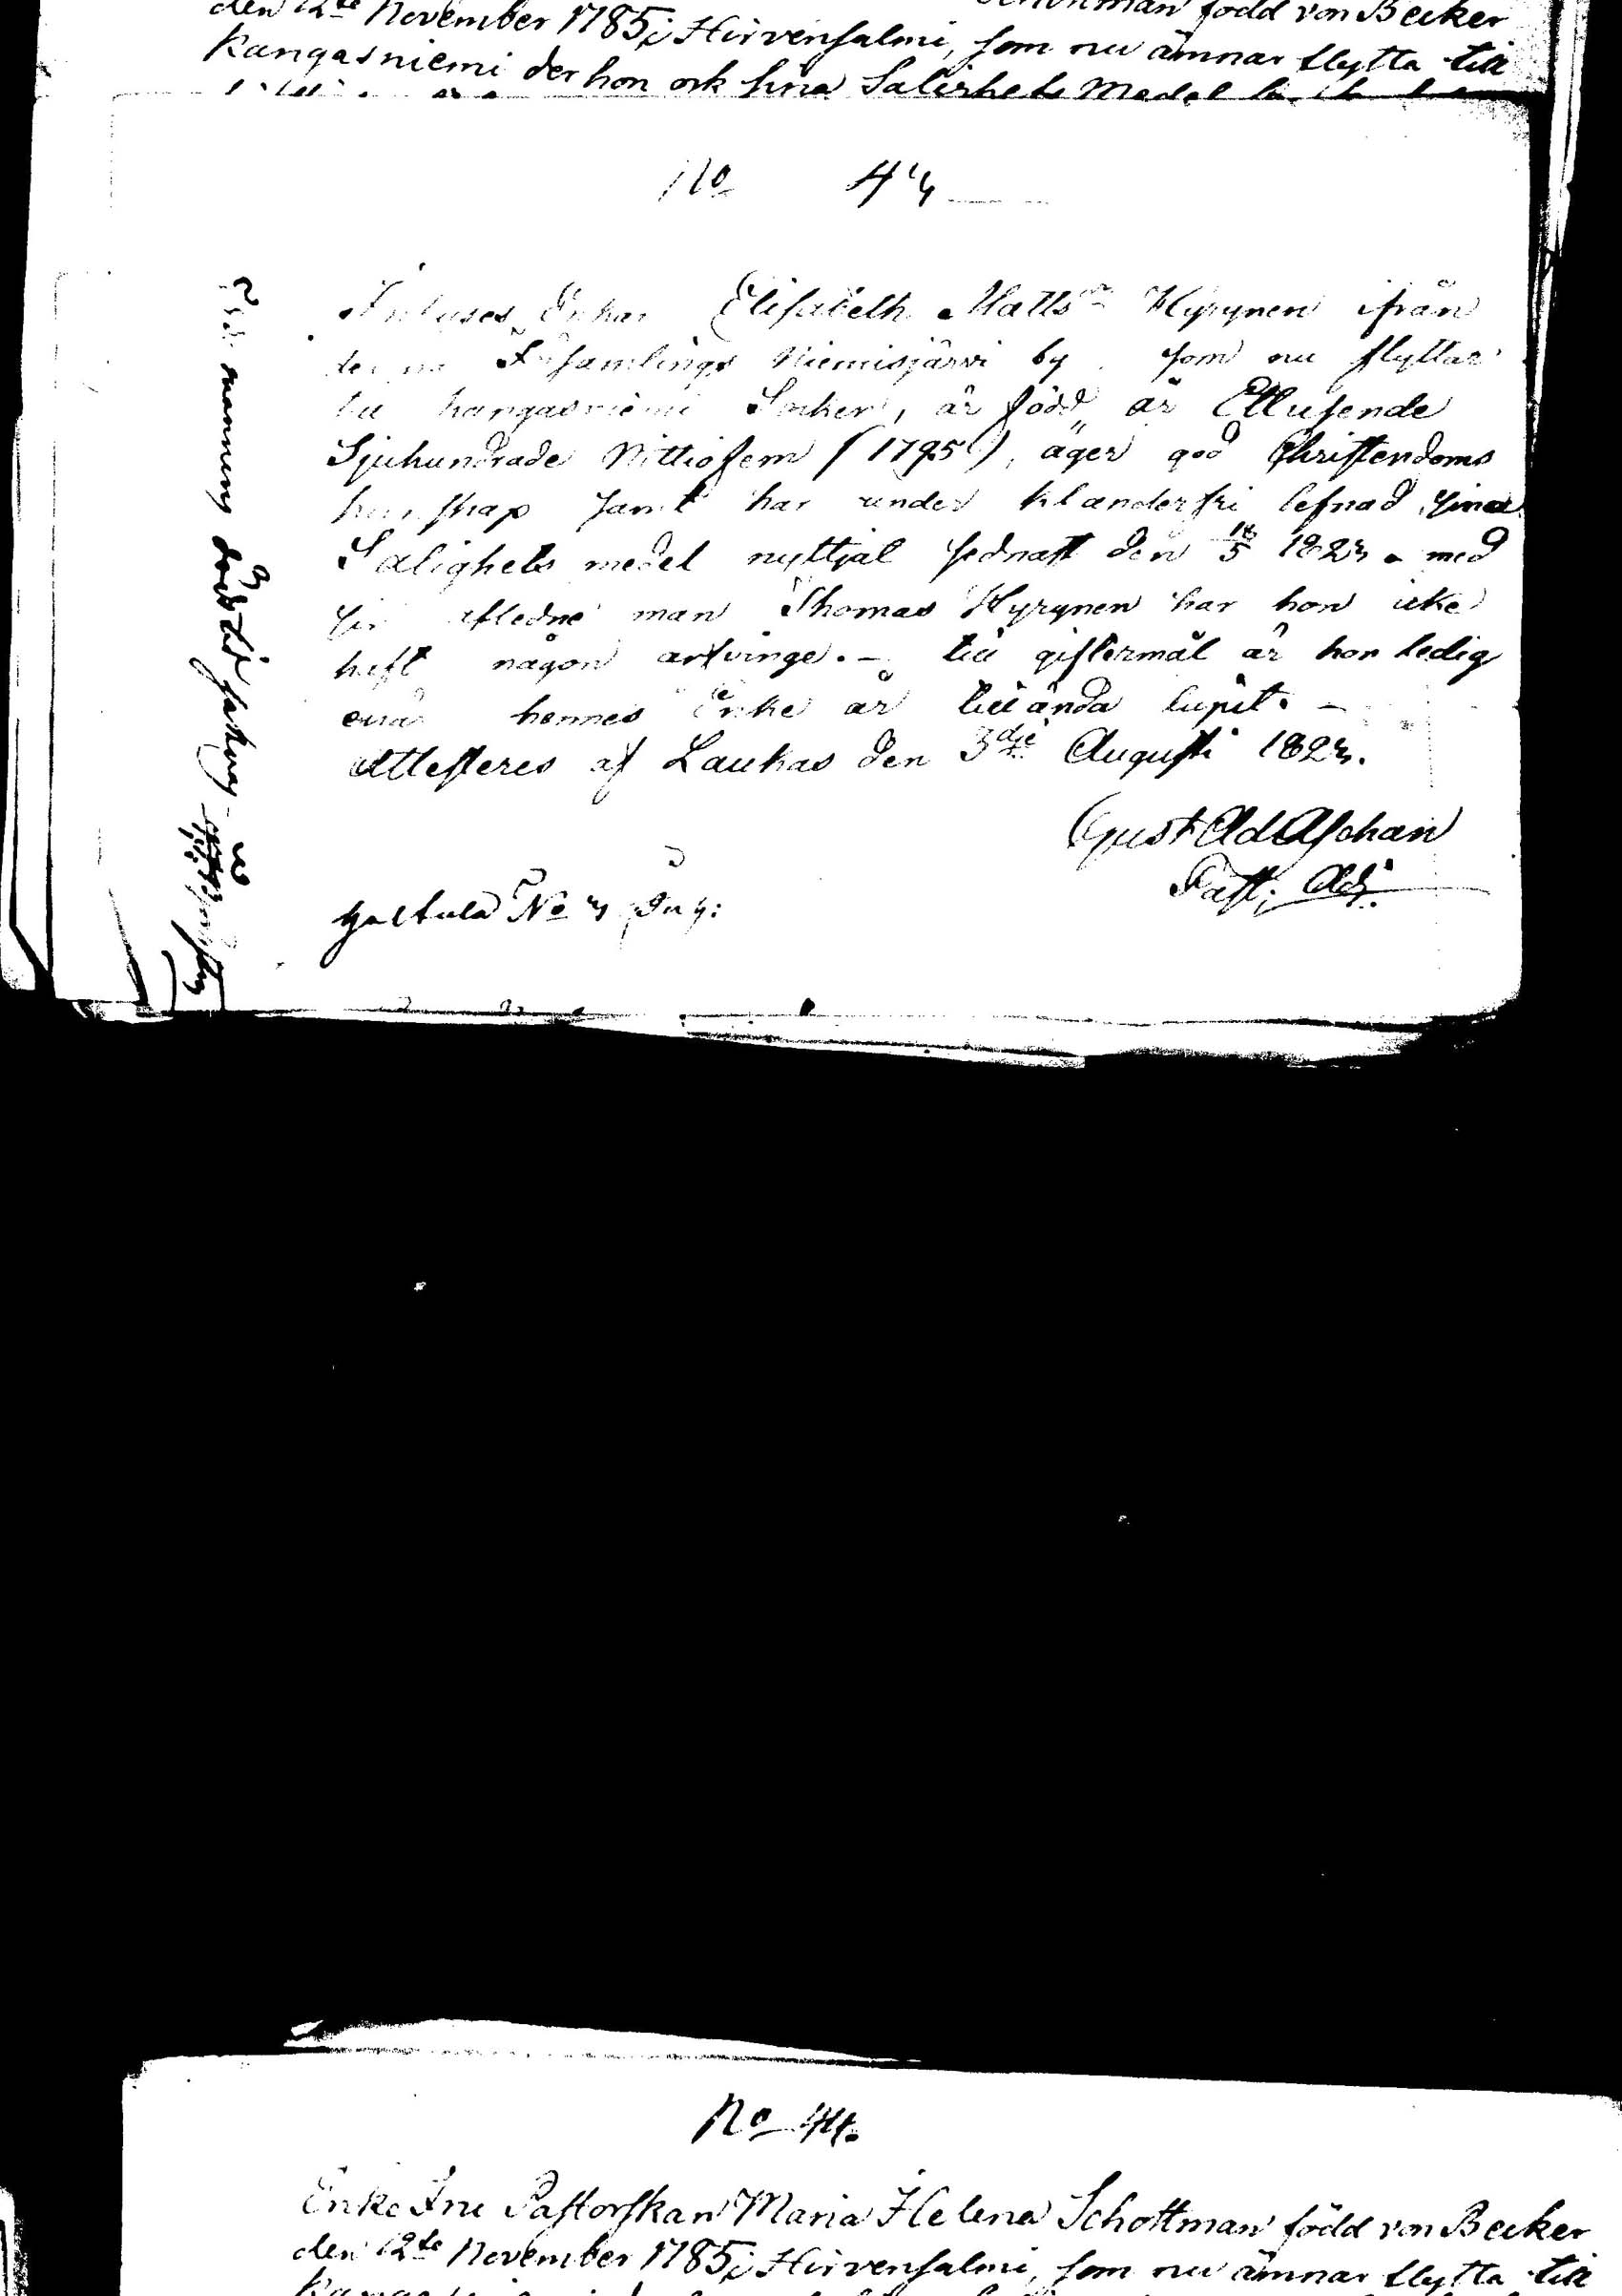 Schottman född von Becker
den 12te November 1785 i Hirvensalmi, som nu ämnar flytta till
Kangasniemi der hon ock sina Salighets Medel
No 43
Inhyses Enkan Elisabeth Mattsdr Hyrynen ifrån
denna Församlings Niemisjärvi by som nu flyttar
till Kangasniemi Socken, är född år Ettusende
Sjuhundrade Nittiofem (1795), äger god Christendoms
kunskap samt har under klanderfri lefnad sina
Salighets medel nyttjat sednast den 18/5 1823. med
sin afledne man Thomas Hyrynen har hon icke
haft någon arfvinge. - till giftermål är hon ledig
enär hennes Enke år till ända lupit. -
Attesteres af Laukas den 3dje Augusti 1823.
Gust Ad Aschan
Past: Adj.
No 3
No 44.
Enke Fru Pastorskan Maria Helena Schottman född von Becker
den 12te November 1785 i Hirvensalmi, som nu ämnar flytta till